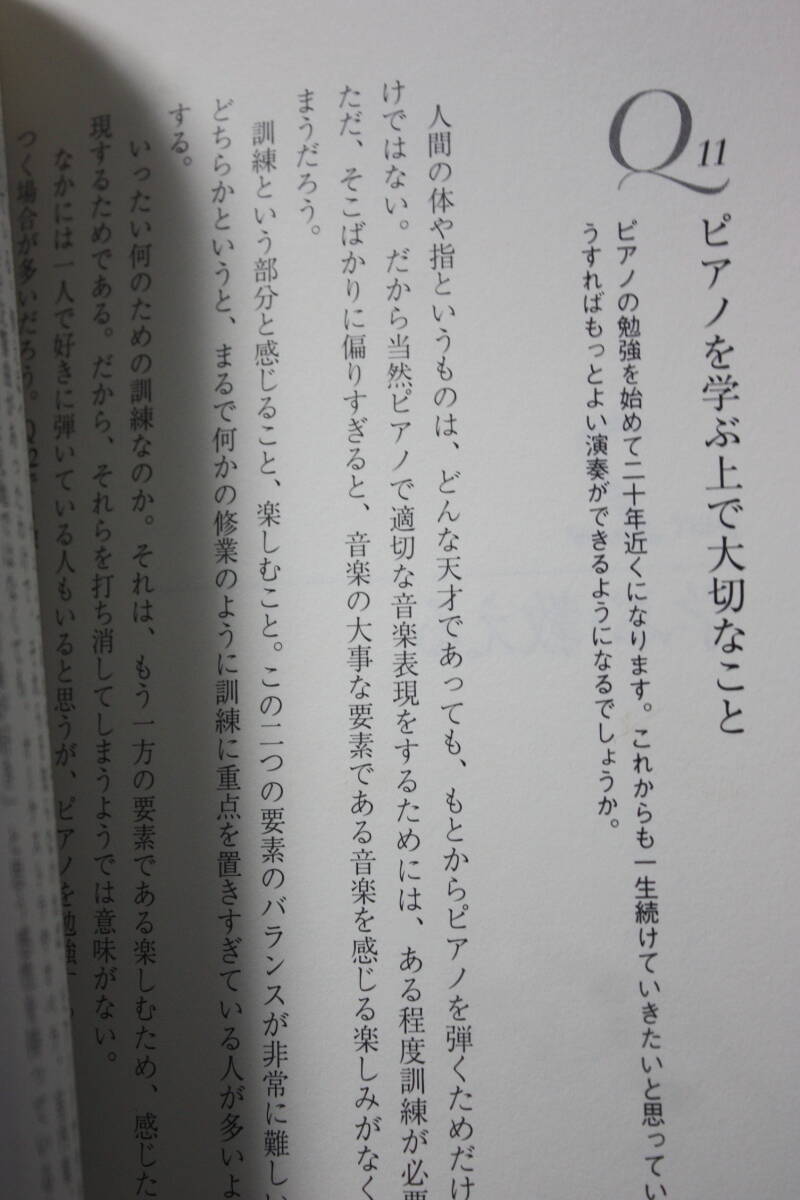 Q11
ピアノを学ぶ上で大切なこと
ピアノの勉強を始めて二十年近くになります。これからも一生続けていきたいと思ってい
うすればもっとよい演奏ができるようになるでしょうか。
人間の体や指というものは、どんな天才であっても、もとからピアノを弾くためだけ
けではない。だから当然ピアノで適切な音楽表現をするためには、ある程度訓練が必要
ただ、そこばかりに偏りすぎると、音楽の大事な要素である音楽を感じる楽しみがなく
まうだろう。
訓練という部分と感じること、楽しむこと。この二つの要素のバランスが非常に難しい
どちらかというと、まるで何かの修業のように訓練に重点を置きすぎている人が多いよ
する。
いったい何のための訓練なのか。それは、もう一方の要素である楽しむため、感じた
現するためである。だから、それらを打ち消してしまうようでは意味がない。
なかには一人で好きに弾いている人もいると思うが、ピアノを勉強
つく場合が多いだろう。